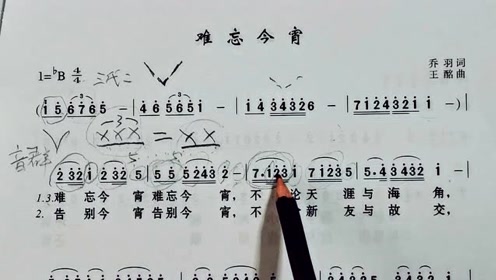 难忘今宵
1=♭B 4/4 三代二
乔羽词
王酩曲
(i 5 6 7 6 5 - | 4 6 5 6 5 i - | i 4 3 4 3 2 6 - | 7 i 2 4 3 2 i i -)
3
X X X = X X
音群
2 3 2 i 2 3 2 5 | 5 5 5 2 4 3 2 - | 7. i 2 3 i 7 i 2 3 5 | 5. 4 3 4 3 2 i - |
1.3. 难忘今 宵难忘今 宵, 不 论天 涯与海 角,
2. 告别今 宵告别今 宵, 不 新 友与故 交,